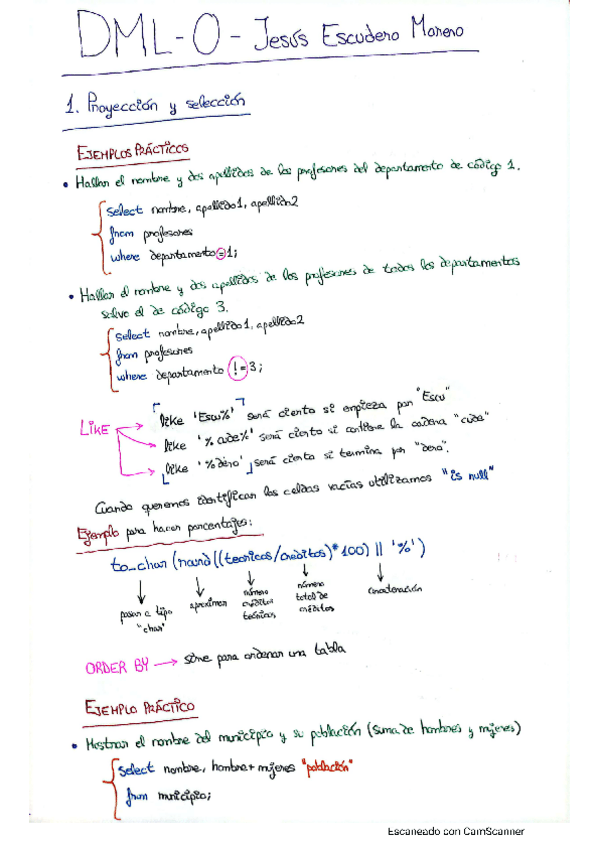 DML - 0 - Jesús Escudero Moreno
1. Proyección y selección
EJEMPLOS PRÁCTICOS
• Hallar el nombre y dos apellidos de los profesores del departamento de código 1.
select nombre, apellido1, apellido2
from profesores
where departamento = 1;
• Hallar el nombre y dos apellidos de los profesores de todos los departamentos
salvo el de código 3.
select nombre, apellido1, apellido2
from profesores
where departamento != 3;
LIKE
like 'Escu%' será cierto si empieza por "Escu"
like '%cude%' será cierto si contiene la cadena "cude"
like '%dero' será cierto si termina por "dero".
Cuando queremos identificar las celdas vacías utilizamos "is null"
Ejemplo para hacer porcentajes:
to_char (round((teoricos/creditos)*100) || '%')
pasar a tipo "char"
aproximar
número créditos teóricos
número total de créditos
concatenación
ORDER BY → sirve para ordenar una tabla
EJEMPLO PRÁCTICO
• Mostrar el nombre del municipio y su población (suma de hombres y mujeres)
select nombre, hombre + mujeres "población"
from municipio;
Escaneado con CamScanner